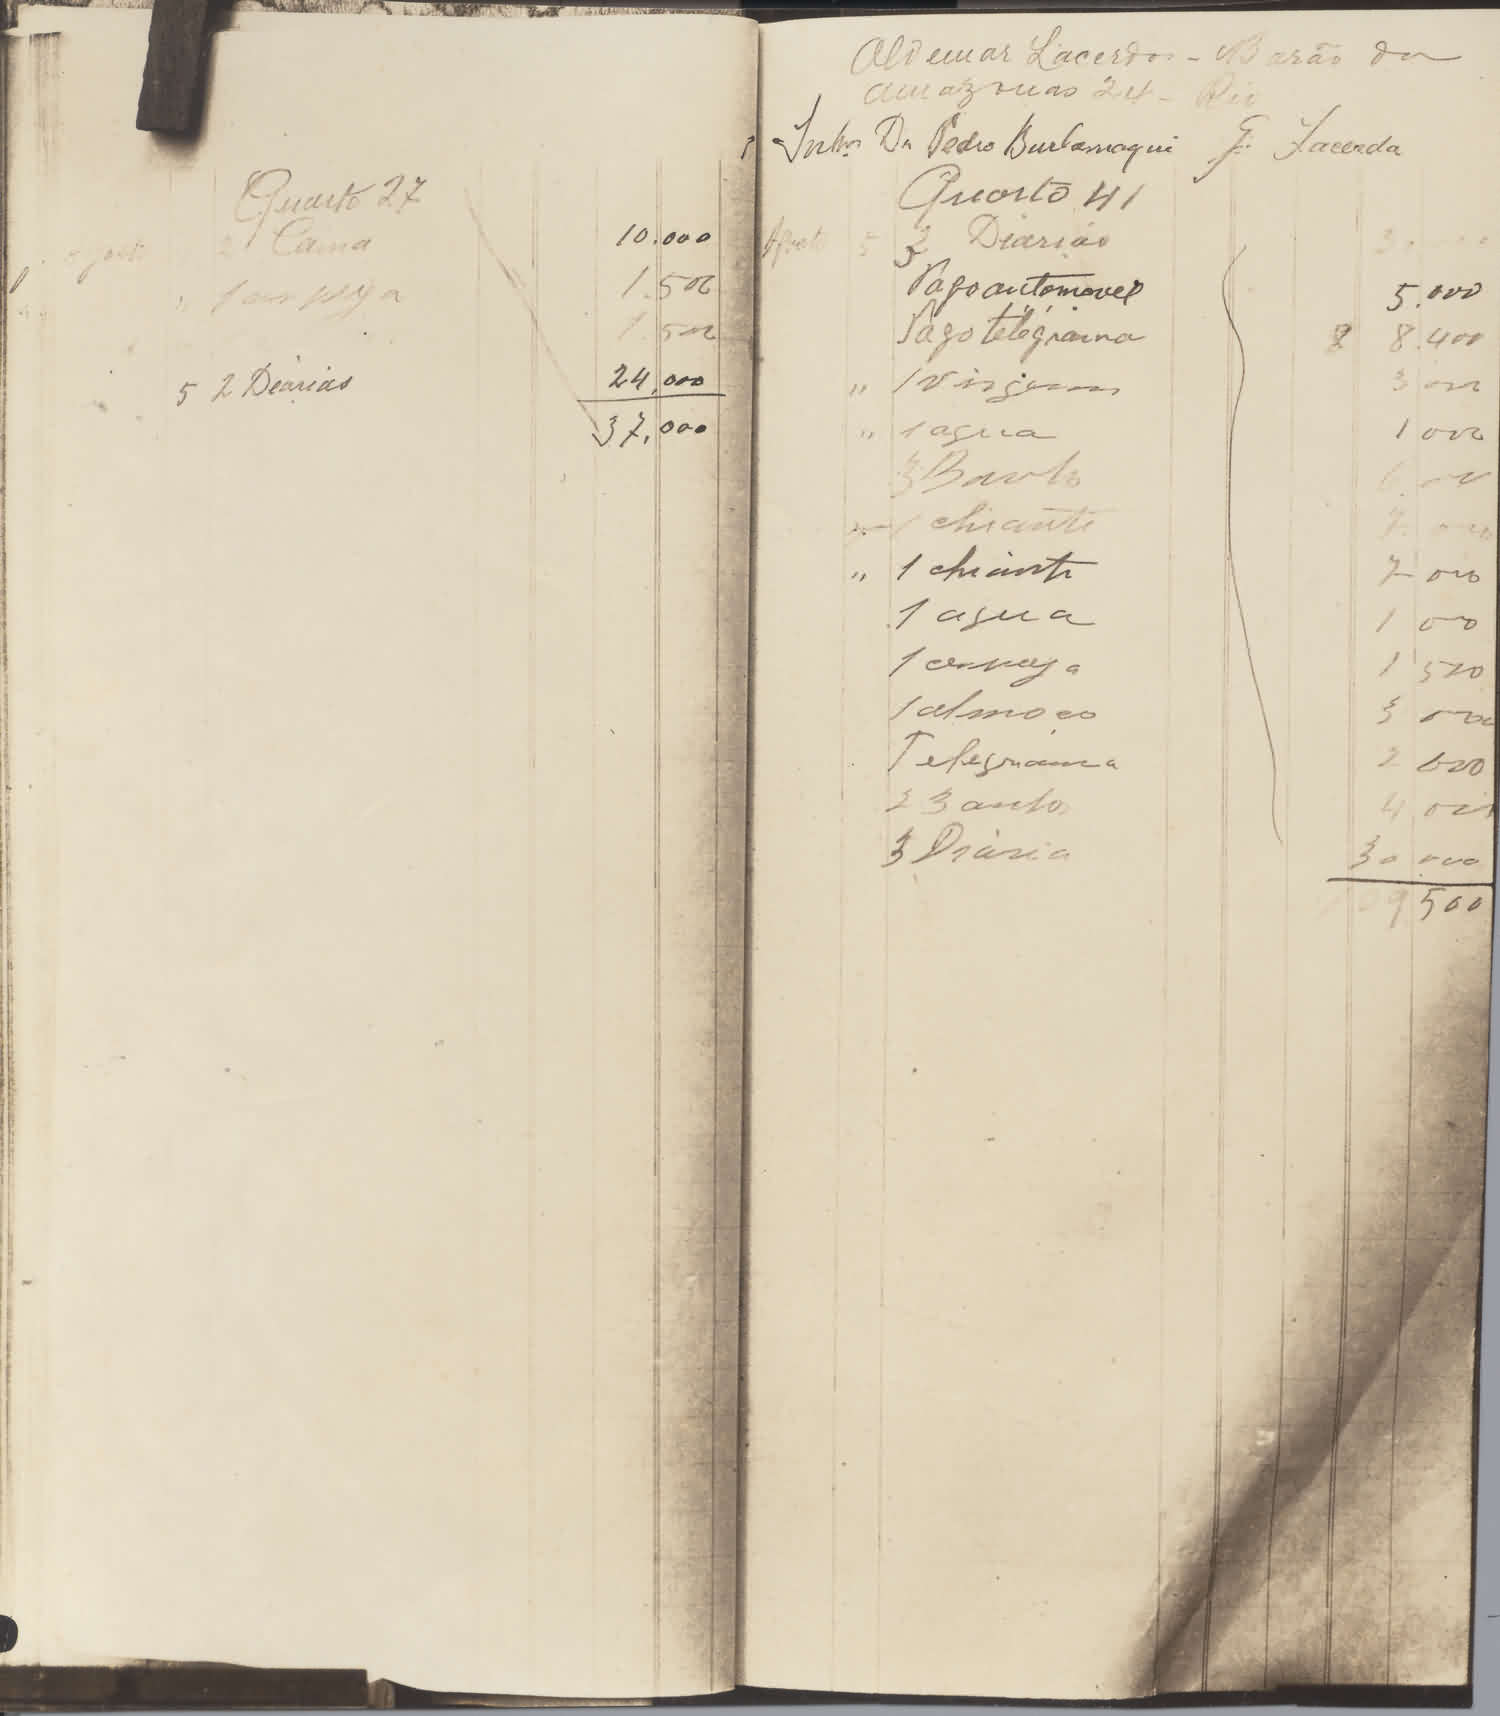 Quarto 27
Agosto 2 Cama 10.000
" 1 cerveja 1.500
1.500
5 2 Deárias 24.000
37.000
Aldemar Lacerda - Barão da
Amazonas 24 - Rio
Dr Pedro Burlamaqui F. Lacerda
Quarto 41
Agosto 5 3 Diarias
Pago automovel 5.000
Pago telegrama 8 8.400
" 1 Virgem 3 000
" 1 agua 1 000
3 Banho 6.000
1 chianti 7.000
" 1 chianti 7 000
1 agua 1 000
1 cerveja 1 500
1 almoco 3 000
Telegrama 2 000
2 Banho 4 000
3 Diária 30 000
109 500